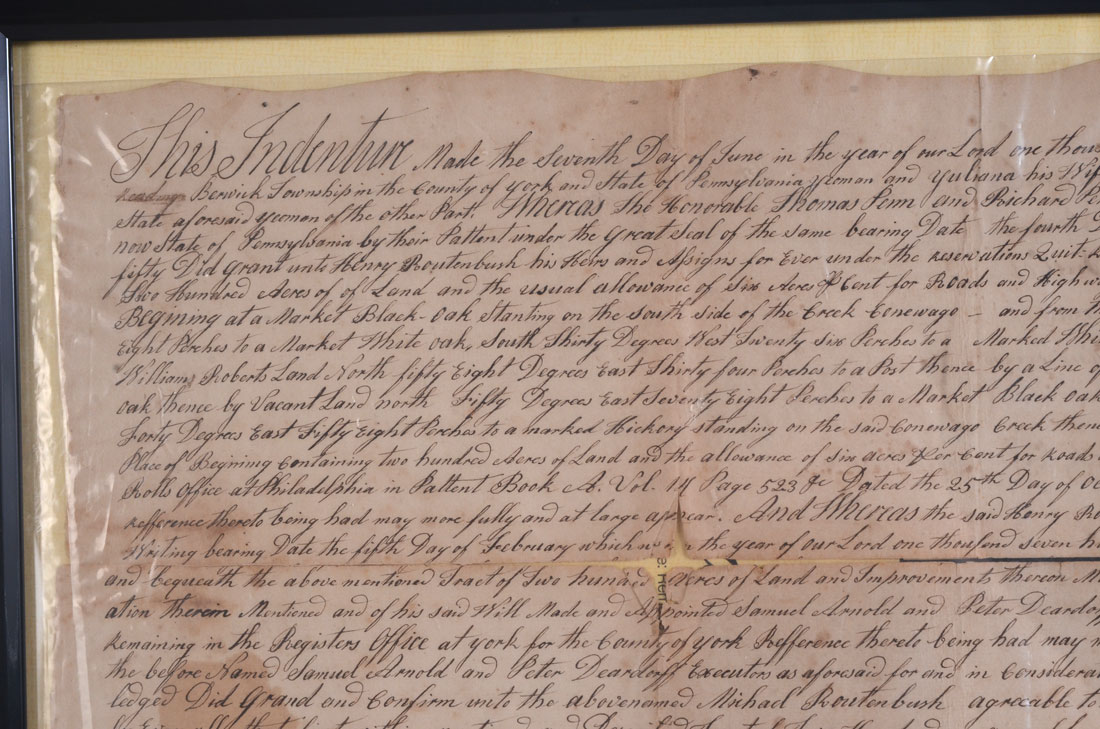 This Indenture Made the Seventh Day of June in the year of our Lord one thous
Reading Berwick Township in the County of york and State of Pennsylvania yeoman and Yuliana his Wif
State aforesaid yeoman of the other Part. Whereas The Honorable Thomas Penn and Richard Pe
now State of Pennsylvania by their Pattent under the great Seal of the same bearing Date the fourth
fifty Did grant unto Henry Routenbush his Heirs and Assigns for Ever under the reservations Quit-
Two Hundred Acres of of Land and the usual allowance of Six Acres ⅌ Cent for Roads and High w
Begining at a Market Black-oak Stanting on the South Side of the Creek Conewago - and from th
Eight Perches to a Market White oak, South Thirty Degrees West Twenty Six Perches to a Marked Whi
Williams Roberts Land North fifty Eight Degrees East Thirty four Perches to a Post thence by a Line o
oak thence by Vacant Land north Fifty Degrees East Seventy Eight Perches to a Market Black oak
Forty Degrees East Fifty Eight Perches to a marked Hickory standing on the said Conewago Creek then
Place of Begining Containing two hundred Acres of Land and the allowance of Six acres ⅌er Cent for Roads
Rolls Office at Philadelphia in Pattent Book A. Vol. 14 Page 523 &c Dated the 25th Day of Oc
Refference thereto being had may more fully and at large appear. And Whereas the said Henry Ro
Writing bearing Date the fifth Day of February which was in the year of our Lord one thousend seven h
and bequeath the above mentioned Tract of Two hundred Acres of Land and Improvements thereon M
ation therein Mentioned and of his said Will Made and Appointed Samuel Arnold and Peter Deardorf
remaining in the Registers Office at york for the County of york Refference thereto being had may m
the before Named Samuel Arnold and Peter Deardorff Executors as aforesaid for and in Considera
ledged Did Grand and Confirm unto the abovenamed Michael Routenbush agreeable to